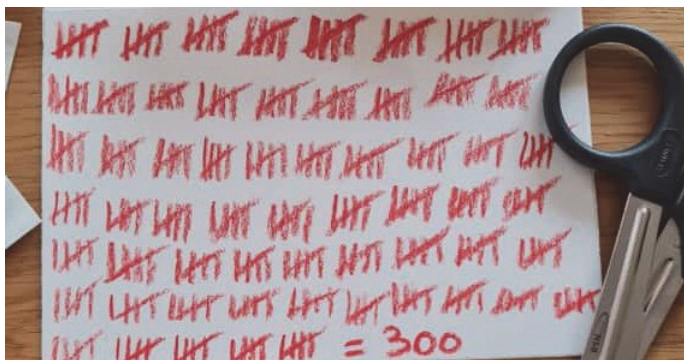 = 300